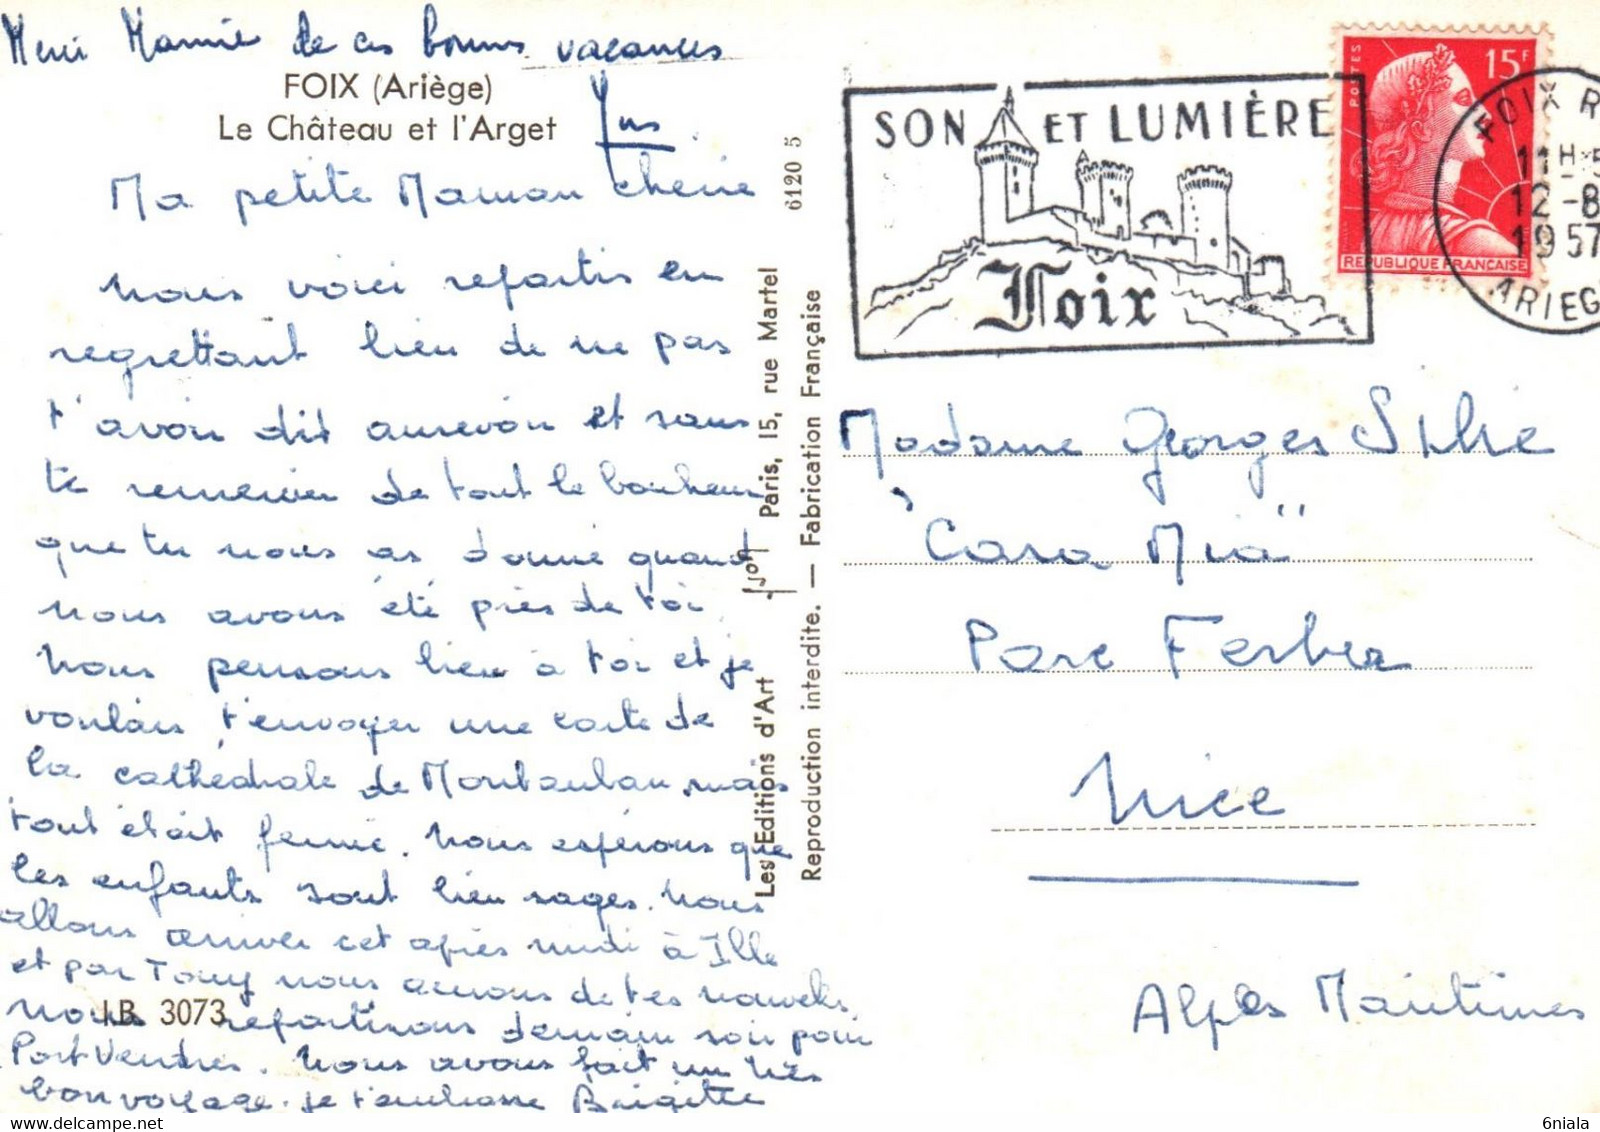 Merci Mamie de ces bonnes vacances
Yves
FOIX (Ariège)
Le Château et l'Arget
Ma petite Maman chérie
Nous voici repartis en
regrettant bien de ne pas
t'avoir dit aurevoir et sans
te remercier de tout le bonheur
que tu nous as donné quand
nous avons été près de toi.
Nous pensons bien à toi et je
voulais t'envoyer une carte de
la cathédrale de Montauban, mais
tout était fermé. Nous espérons que
les enfants sont bien sages. Nous
allons arriver cet après midi à Ille
et par Tony nous aurons de tes nouvelles
Nous repartirons demain soir pour
Port Vendres. Nous avons fait un très
bon voyage. je t'embrasse Brigitte
I.B. 3073
6120 5
Les Editions d'Art Yvon Paris, 15, rue Martel
Reproduction interdite. — Fabrication Française
SON ET LUMIÈRE
Foix
POSTES
15F
REPUBLIQUE FRANÇAISE
FOIX R
11H
12-8
1957
ARIEG
Madame Georges
"Cara Mia"
Parc Ferber
Nice
Alpes Maritimes
6niala